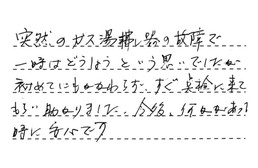 突然のガス湯沸し器の故障で
一時はどうしようという思いでしたが
初めてにもかかわらず、すぐ点検に来て
もらい助かりました。今後、何かがあった
時に安心です